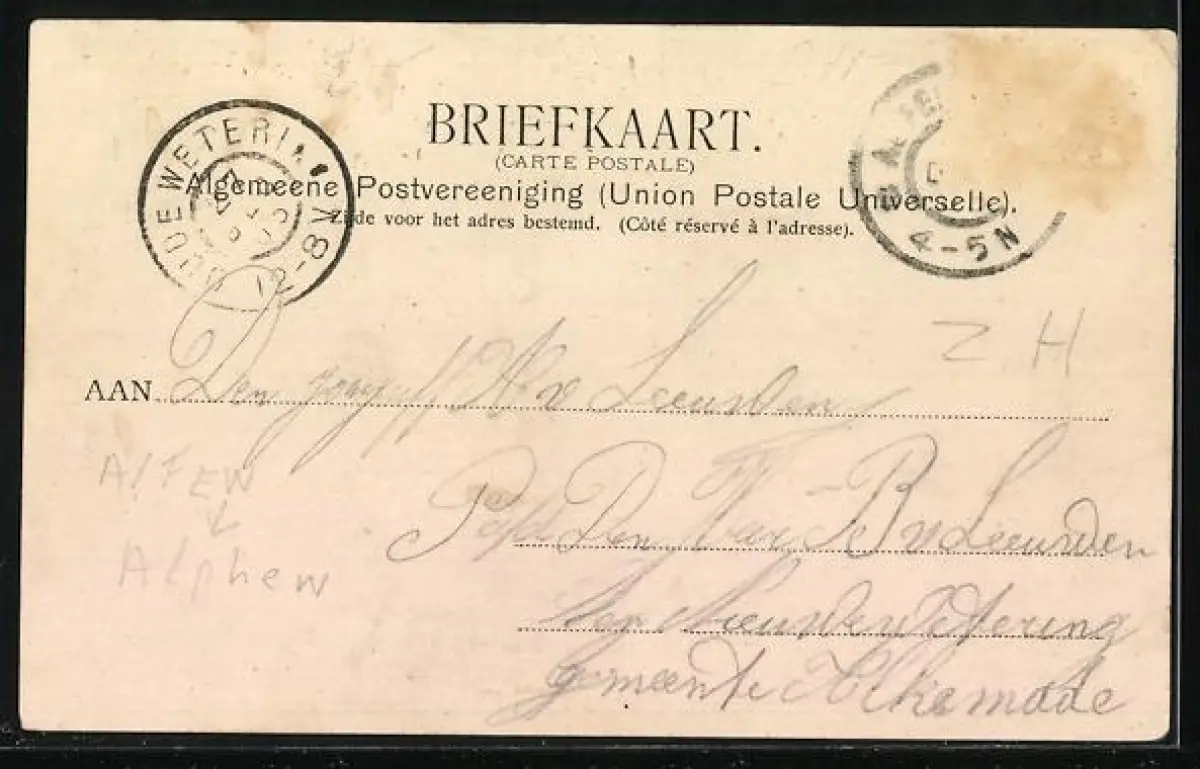 BRIEFKAART.
(CARTE POSTALE)
Algemeene Postvereeniging (Union Postale Universelle).
Zijde voor het adres bestemd. (Côté réservé à l'adresse).
OUDE WETERI
12-8V
4-5N
Z H
AAN Den A v Leeuwden
Den B v Leeuwden
Nieuwe Wetering
gemeente Alkemade
AlFEW
Alphew